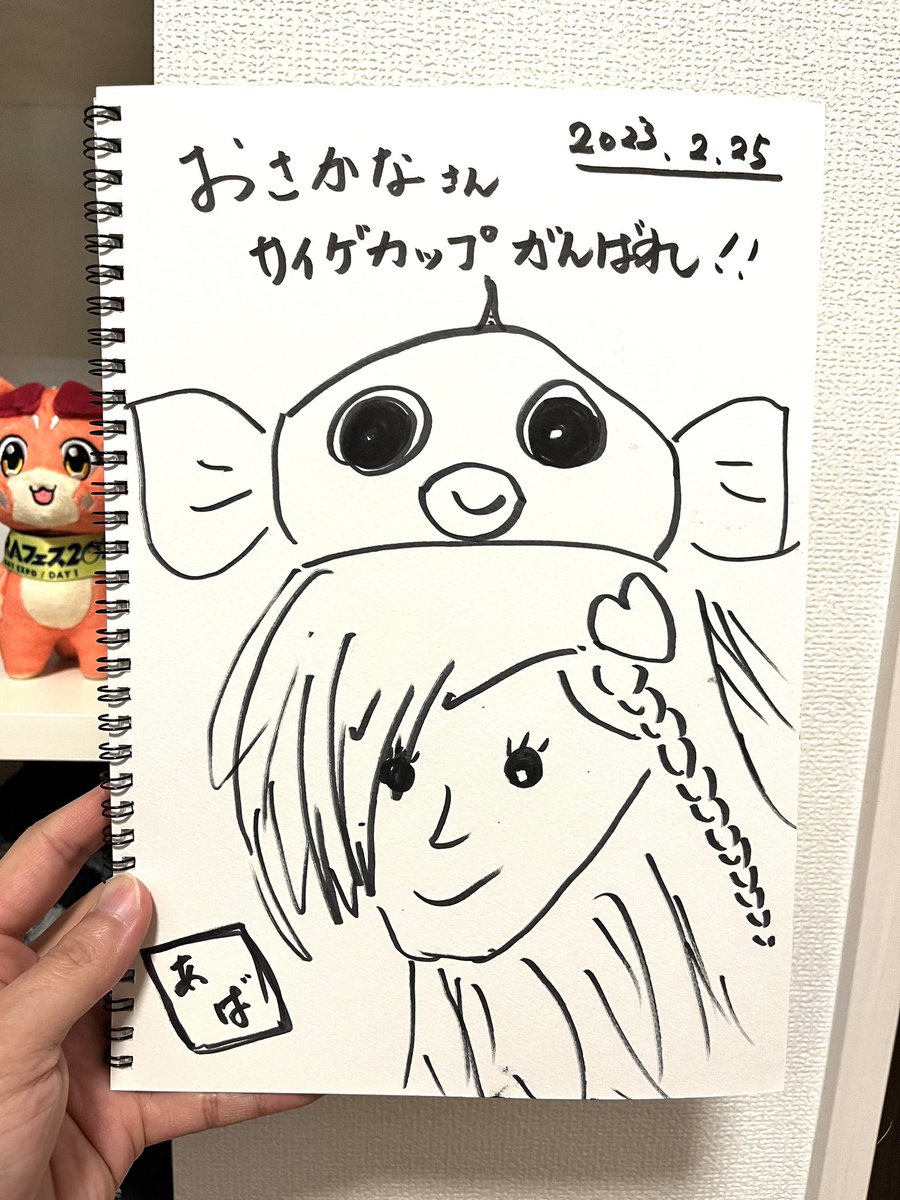 2023.2.25
おさかなさん
サイゲカップがんばれ!!
あば
フェス20
EXPO / DAY 1